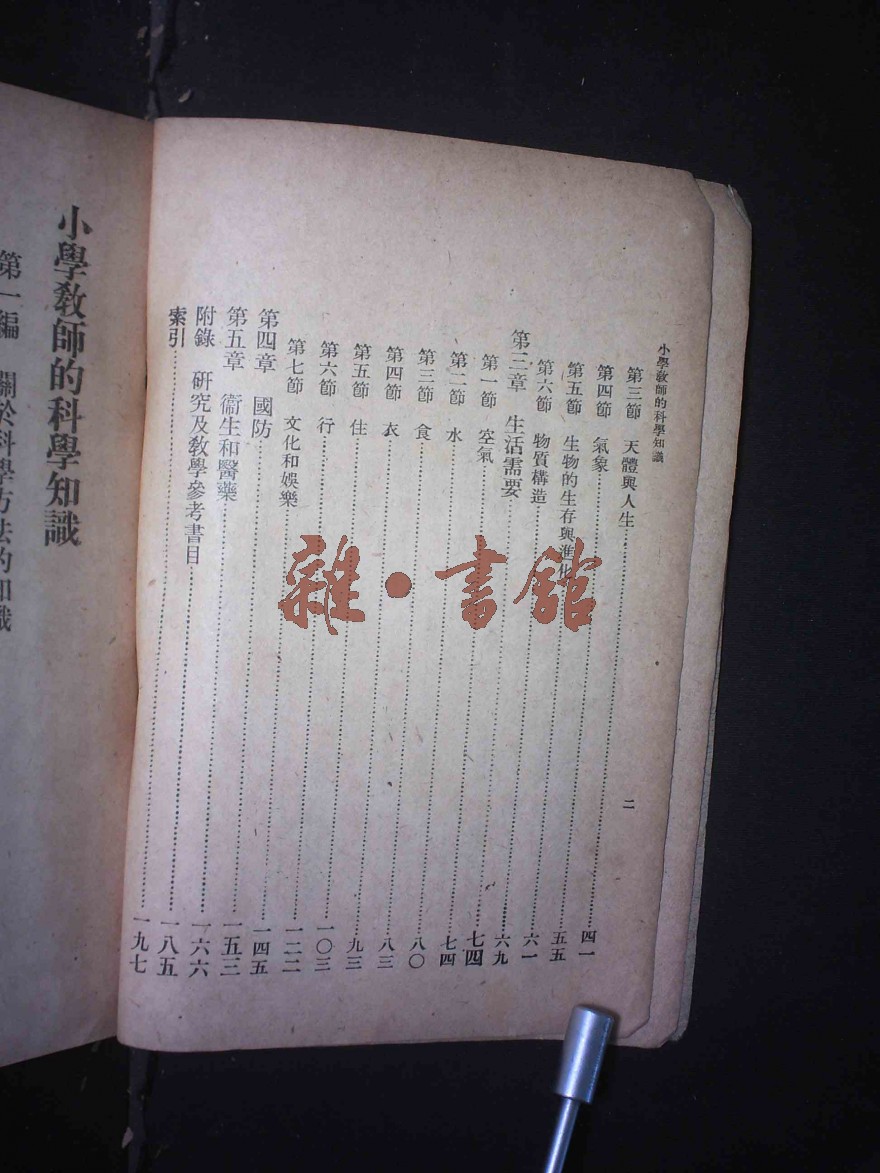 小學教師的科學知識
二
第三節 天體與人生……四一
第四節 氣象……五五
第五節 生物的生存與進化……六一
第六節 物質構造……六九
第三章 生活需要……七四
第一節 空氣……七四
第二節 水……八〇
第三節 食……八三
第四節 衣……九三
第五節 住……一〇三
第六節 行……一二二
第七節 文化和娛樂……一四五
第四章 國防……一五三
第五章 衞生和醫藥……一六六
附錄 研究及教學參考書目……一八五
索引……一九七
小學教師的科學知識
第一編 關於科學方法的知識
雜·書館